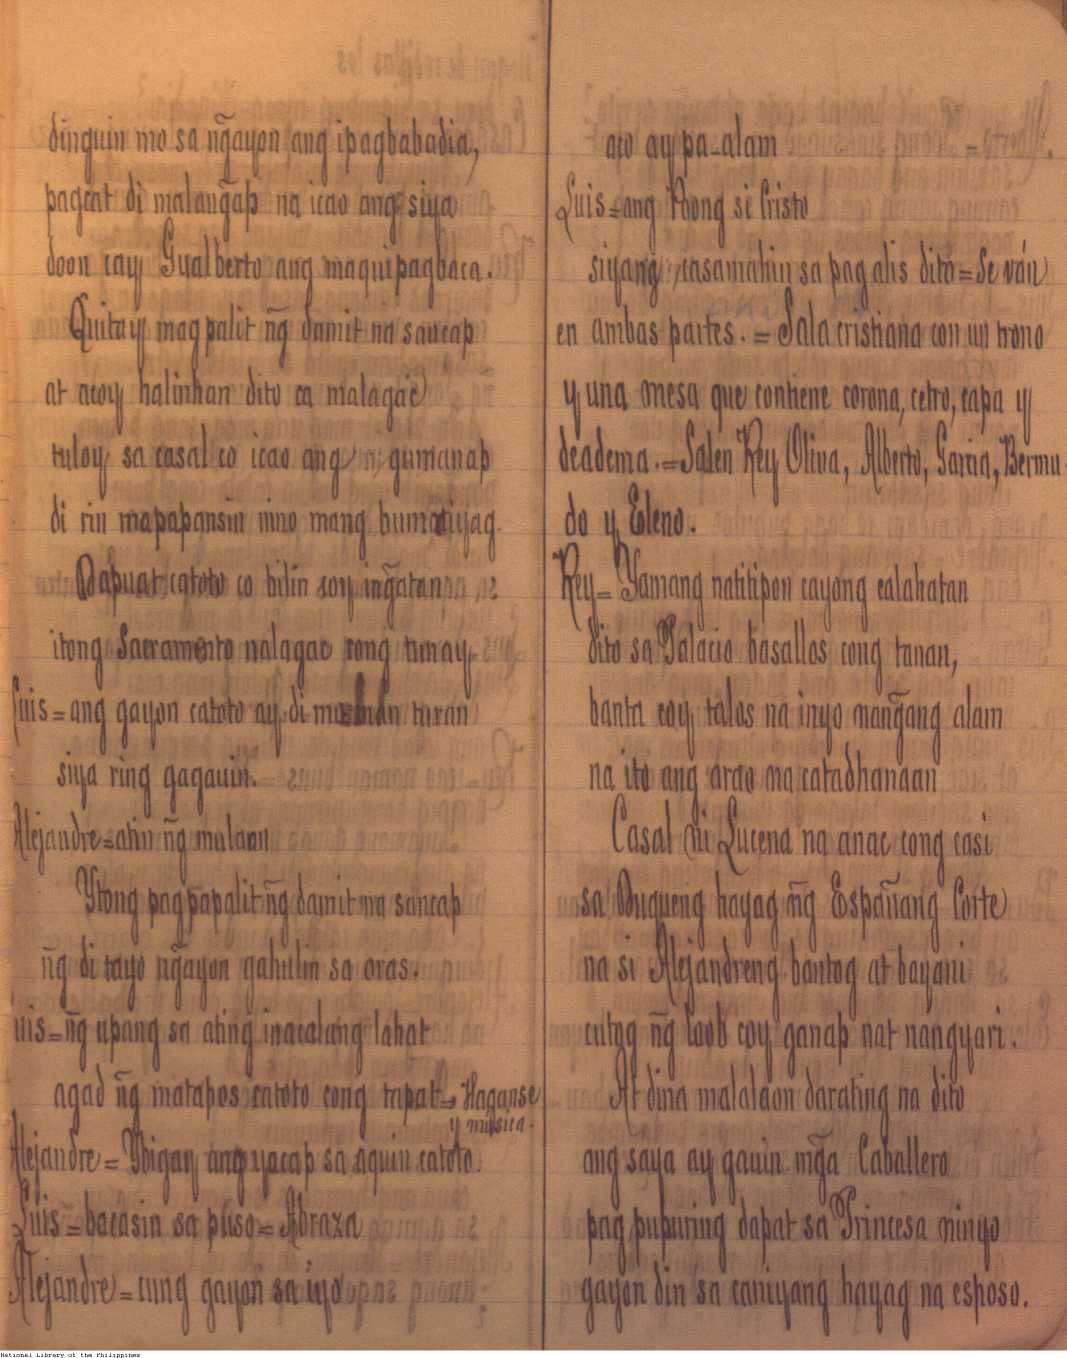 dinguin mo sa ng̃ayon ang ipagbabadia,
pagcat di malaug̃ap na icao ang siya
doon cay Gualberto ang maquipagbaca.
Quitay magpalit ñg damit na sancap
at acoy halinhan dito ca malagac
tuloy sa casal co icao ang gumanap
di rin mapapansin nino mang
Dapuat catoto co bilin coy ing̃atan
itong Sacramento nalagac cong tunay
Luis=ang gayon catoto ay di turan
siya ring gagauin.
Alejandre=atin ñg malaon
Ytong pagpapalit ñg damit na sancap
ñg di tayo ng̃ayon gahulin sa oras.
uis=ñg upang sa ating inacalang lahat
agad ñg matapos catoto cong tapat= Haganse
y musica.
Alejandre= Ybigay ang yacap sa aquin catoto.
Luis=bacasin sa puso=Abraza
Alejandre=cung gayon sa iyo
aco ay pa-alam =
Luis=ang Poong si Cristo
siyang casamahin sa pag alis dito=Se ván
en ambas partes.= Sala cristiana con un trono
y una mesa que contiene corona, cetro, capa y
deadema.=Salen Rey Oliva, Alberto, Garcia, Bermu-
do y Eleno.
Rey= Yamang natitipon cayong calahatan
dito sa Palacio basallos cong tanan,
banta coy talos na inyo nang̃ang alam
na ito ang arao na catadhanaan
Casal ni Lucena na anac cong casi
sa Duqueng hayag ñg Españang Corte
na si Alejandreng bantog at bayani
cutog ñg loob coy ganap nat nangyari.
At dina malalaon darating na dito
ang saya ay gauin mg̃a Caballero
pag pupuring dapat sa Princesa ninyo
gayon din sa caniyang hayag na esposo.
National Library of the Philippines